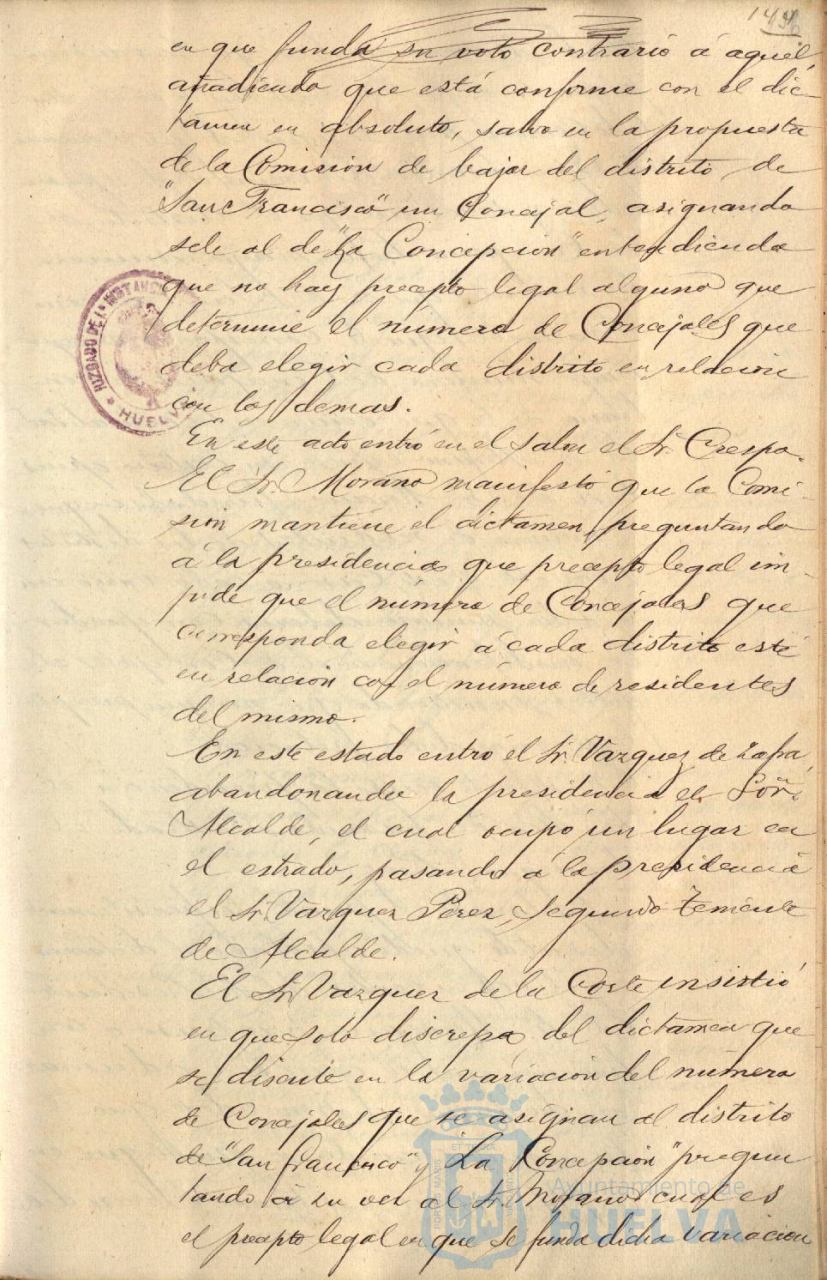 en que funda su voto contrario á aquél,
añadiendo que está conforme con el dic-
tamen en absoluto, salvo en la propuesta
de la Comisión de bajar del distrito de
"San Francisco" un Concejal, asignando
sele al de "La Concepción" entendiendo
que no hay precepto legal alguno que
determine el número de Concejales que
deba elegir cada distrito en relación
con los demas.
En este acto entró en el salon el Sr. Crespo.
El Sr. Morano manifestó que la Comi-
sion mantiene el dictamen, preguntando
á la presidencia que precepto legal im-
pide que el número de Concejales que
corresponda elegir á cada distrito esté
en relación con el número de residentes
del mismo.
En este estado entró el Sr. Vazquez de Zafra,
abandonando la presidencia el Sor.
Alcalde, el cual ocupó un lugar en
el estrado, pasando á la presidencia
el Sr. Vazquez Perez, Segundo Teniente
de Alcalde.
El Sr. Vazquez de la Corte insistió
en que solo discrepa del dictamen que
se discute en la variación del número
de Concejales que se asignan al distrito
de "San Francisco" y "La Concepción" pregun
tando á su vez al Sr. Morano cual es
el precepto legal en que se funda dicha variación
JUZGADO DE 1ª INSTANCIA
HUELVA
Ayuntamiento de
HUELVA